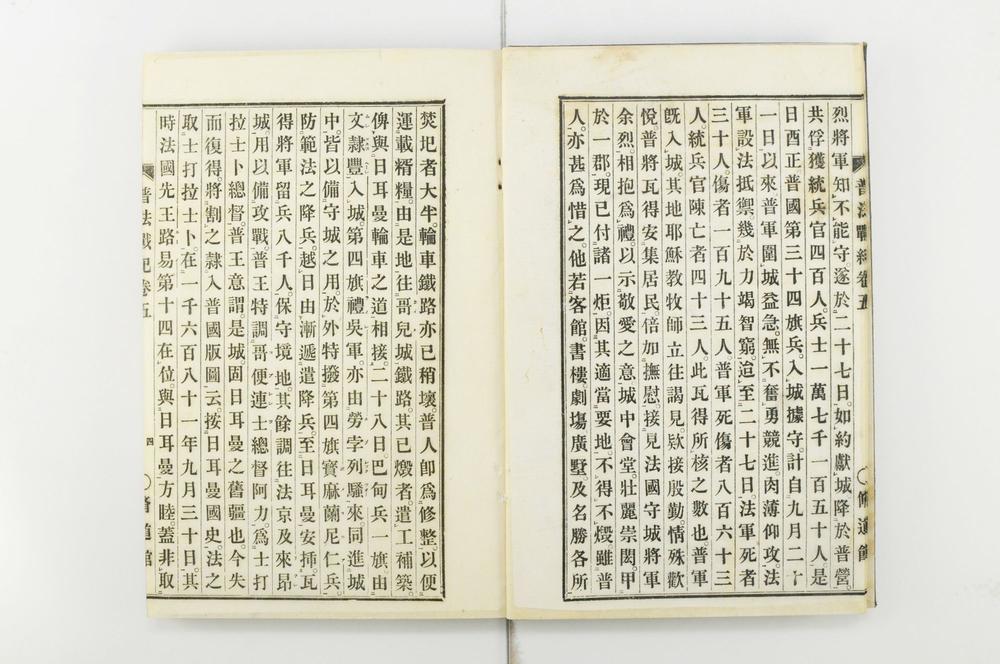 烈將軍知不能守遂於二十七日如約獻城降於普營。
共俘獲統兵官四百人。兵士一萬七千一百五十人。是
日酉正普國第三十四旗兵入城據守。計自九月二十
一日以來普軍圍城益急。無不奮勇競進。肉薄仰攻。法
軍設法抵禦。幾於力竭智窮。迨至二十七日。法軍死者
三十人。傷者一百九十五人。普軍死傷者八百六十三
人。統兵官陳亡者四十三人。此瓦得所核之數也。普軍
旣入城。其地耶穌敎牧師立往謁見。欵接殷勤。情殊歡
悅。普將瓦得安集居民。倍加撫慰。接見法國守城將軍
余烈。相抱爲禮。以示敬愛之意。城中會堂。壯麗崇閎。甲
於一郡。現已付諸一炬。因其適當要地。不得不燬。雖普
人。亦甚爲惜之。他若客館。書樓。劇塲。廣墅。及名勝各所
普法戰紀卷五
脩道館
焚圯者大半。輪車鐵路亦已稍壞。普人卽爲修整。以便
運載糈糧。由是地往哥兒城鐵路。其已燬者。遣工補築。
俾與日耳曼輪車之道相接。二十八日。巴旬兵一旗由
文隷豐入城。第四旗禮吳軍。亦由勞孛列騷來同進城
中。皆以備守城之用。於外特撥第四旗寳麻蘭尼仁兵。
防範法之降兵。越日由漸遞遣降兵。至日耳曼安揷。瓦
得將軍留兵八千人。保守境地。其餘調往法京及來昂
城。用以備攻戰。普王特調哥便連士總督阿力。爲士打
拉士卜總督。普王意謂。是城固日耳曼之舊疆也。今失
而復得。將割之隷入普國版圖云。按日耳曼國史。法之
取士打拉士卜。在一千六百八十一年九月三十日。其
時法國先王路易第十四在位。與日耳曼方睦。蓋非取
普法戰紀卷五
四
脩道館